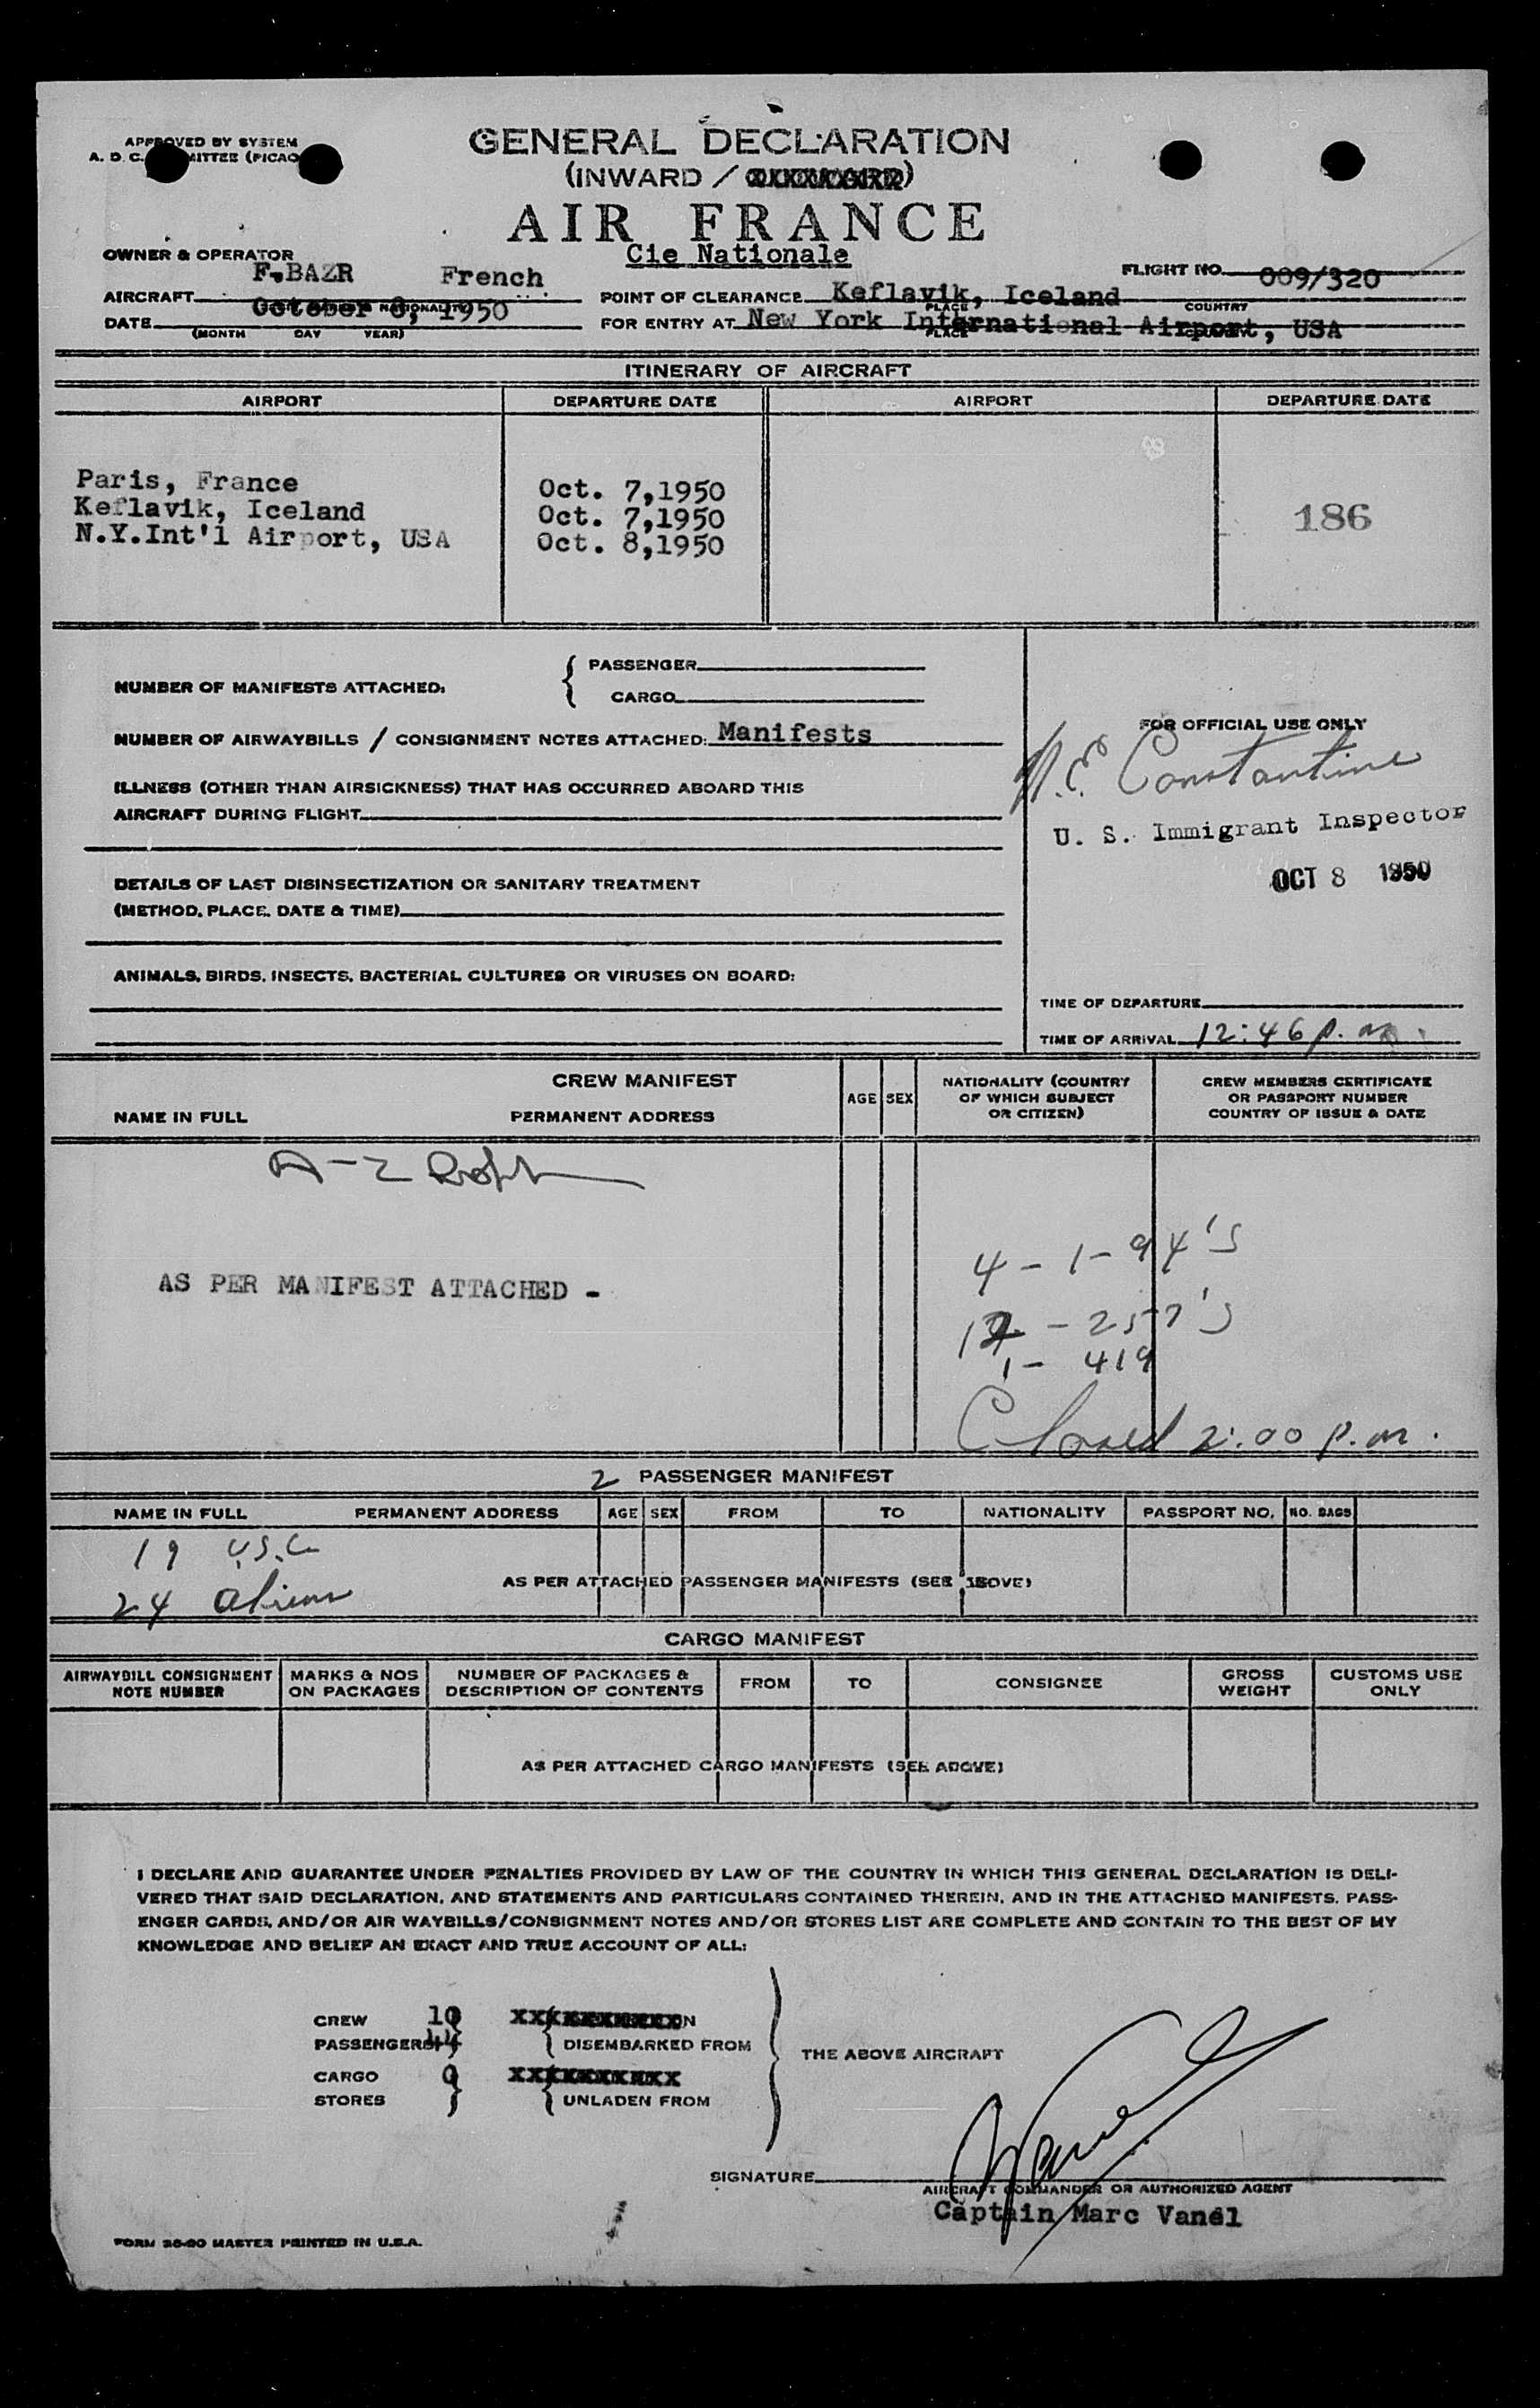 APPROVED BY SYSTEM
A. D. C. (PICAO
GENERAL DECLARATION
(INWARD /
AIR FRANCE
OWNER & OPERATOR
Cie Nationale
F.BAZR French
FLIGHT NO. 009/320
AIRCRAFT NATIONALITY
POINT OF CLEARANCE Keflavik, Iceland
PLACE COUNTRY
DATE October 8, 1950
(MONTH DAY YEAR)
FOR ENTRY AT New York International Airport, USA
PLACE
ITINERARY OF AIRCRAFT
AIRPORT DEPARTURE DATE AIRPORT DEPARTURE DATE
Paris, France Oct. 7,1950
Keflavik, Iceland Oct. 7,1950
N.Y.Int'l Airport, USA Oct. 8,1950
186
NUMBER OF MANIFESTS ATTACHED:
PASSENGER
CARGO
NUMBER OF AIRWAYBILLS / CONSIGNMENT NOTES ATTACHED: Manifests
ILLNESS (OTHER THAN AIRSICKNESS) THAT HAS OCCURRED ABOARD THIS
AIRCRAFT DURING FLIGHT
DETAILS OF LAST DISINSECTIZATION OR SANITARY TREATMENT
(METHOD, PLACE, DATE & TIME)
ANIMALS, BIRDS, INSECTS, BACTERIAL CULTURES OR VIRUSES ON BOARD:
FOR OFFICIAL USE ONLY
Constantine
U. S. Immigrant Inspector
OCT 8 1950
TIME OF DEPARTURE
TIME OF ARRIVAL 12:46 p.m.
CREW MANIFEST
NAME IN FULL PERMANENT ADDRESS AGE SEX NATIONALITY (COUNTRY OF WHICH SUBJECT OR CITIZEN) CREW MEMBERS CERTIFICATE OR PASSPORT NUMBER COUNTRY OF ISSUE & DATE
AS PER MANIFEST ATTACHED -
4 - 1-94's
- 257's
1 - 419
Closed 2:00 p.m.
2 PASSENGER MANIFEST
NAME IN FULL PERMANENT ADDRESS AGE SEX FROM TO NATIONALITY PASSPORT NO. NO. BAGS
19 U.S.C.
24 aliens
AS PER ATTACHED PASSENGER MANIFESTS (SEE ABOVE)
CARGO MANIFEST
AIRWAYBILL CONSIGNMENT NOTE NUMBER MARKS & NOS ON PACKAGES NUMBER OF PACKAGES & DESCRIPTION OF CONTENTS FROM TO CONSIGNEE GROSS WEIGHT CUSTOMS USE ONLY
AS PER ATTACHED CARGO MANIFESTS (SEE ABOVE)
I DECLARE AND GUARANTEE UNDER PENALTIES PROVIDED BY LAW OF THE COUNTRY IN WHICH THIS GENERAL DECLARATION IS DELI-
VERED THAT SAID DECLARATION, AND STATEMENTS AND PARTICULARS CONTAINED THEREIN, AND IN THE ATTACHED MANIFESTS, PASS-
ENGER CARDS, AND/OR AIR WAYBILLS/CONSIGNMENT NOTES AND/OR STORES LIST ARE COMPLETE AND CONTAIN TO THE BEST OF MY
KNOWLEDGE AND BELIEF AN EXACT AND TRUE ACCOUNT OF ALL:
CREW 10
PASSENGERS 44 DISEMBARKED FROM
THE ABOVE AIRCRAFT
CARGO
STORES UNLADEN FROM
SIGNATURE
AIRCRAFT COMMANDER OR AUTHORIZED AGENT
Captain Marc Vanel
FORM 20-90 MASTER PRINTED IN U.S.A.